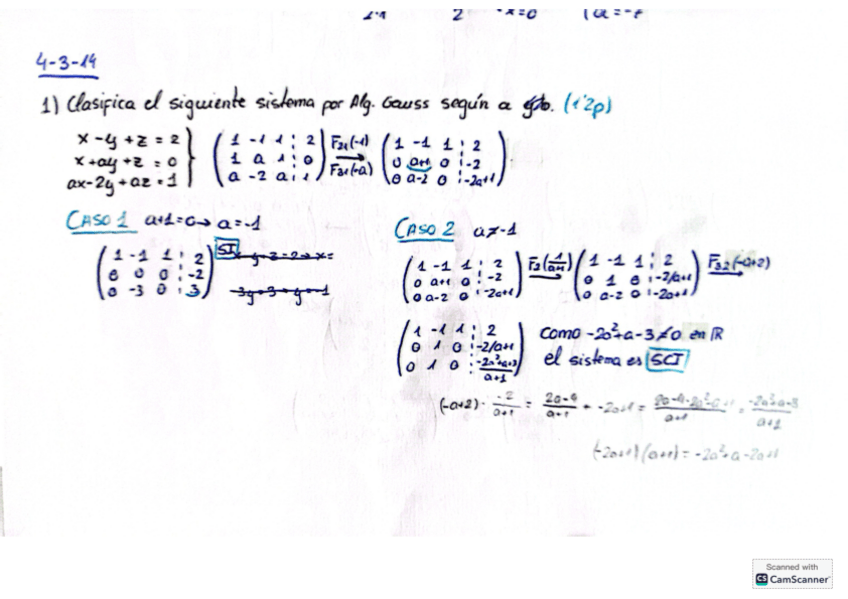 2 x=0
4-3-19
1) Clasifica el siguiente sistema por Alg. Gauss según a (1'2p)
x-y+z=2
x+ay+z=0
ax-2y+az=1
1 -1 1 : 2
1 a 1 : 0
a -2 a : 1
F21(-1)
F31(-a)
1 -1 1 : 2
0 a+1 0 : -2
0 a-2 0 : -2a+1
CASO 1 a+1=0→ a=-1
1 -1 1 : 2
0 0 0 : -2
0 -3 0 : 3
SI
CASO 2 a≠-1
1 -1 1 : 2
0 a+1 0 : -2
0 a-2 0 : -2a+1
F2(1/a+1)
1 -1 1 : 2
0 1 0 : -2/a+1
0 a-2 0 : -2a+1
F32(-a+2)
1 -1 1 : 2
0 1 0 : -2/a+1
0 1 0 : -2a²+a+3/a+1
Como -2a²+a-3≠0 en ℝ
el sistema es SCI
(-a+2) · -2/a+1 = 2a-4/a+1 + -2a+1 = = -2a²+a-3/a+1
(-2a+1)(a+1) = -2a²+a-2a+1
Scanned with
CS CamScanner